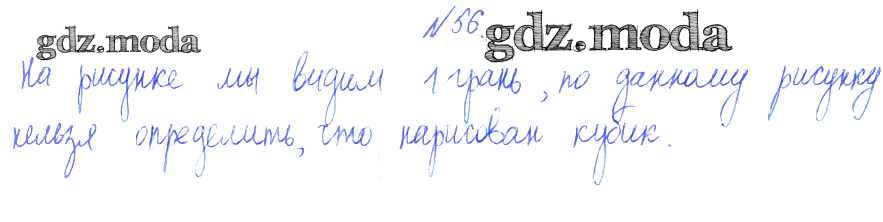 № 56.
gdz.moda gdz.moda
На рисунке мы видим 1 грань, по данному рисунку
нельзя определить, что нарисован кубик.